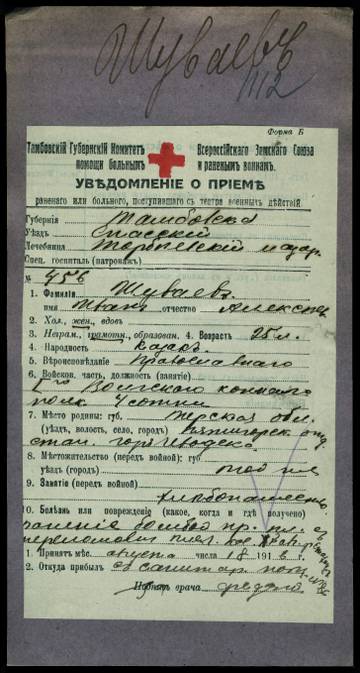 Шуваевъ
1112
Форма Б
Тамбовскій Губернскій Комитетъ Всероссійскаго Земскаго Союза
помощи больнымъ и раненымъ воинамъ.
УВѢДОМЛЕНІЕ О ПРІЕМѢ
раненаго или больного, поступившаго съ театра военныхъ дѣйствій.
Губернія Тамбовская
Уѣздъ Спасскій
Лечебница
Спец. госпиталь (патронажъ)
№ 456
1. Фамилія Шуваевъ
имя Иванъ отчество Алексѣев
2. Хол., жен., вдовъ
3. Неграм., грамотн., образован. 4. Возрастъ 25 л.
4. Народность казакъ
5. Вѣроисповѣданіе Православнаго
6. Войсков. часть, должность (занятіе)
1го Волгскаго коннаго
полк 4 сотни
7. Мѣсто родины: губ. Терская обл.
(уѣздъ, волость, село, городъ) Пятигорск. отд
стан.
8. Мѣстожительство (передъ войной); губ
уѣздъ (городъ)
9. Занятіе (передъ войной)
хлѣбопашество
10. Болѣзнь или поврежденіе (какое, когда и гдѣ получено)
раненіе бомбой пр. пл. съ
переломомъ
1. Принятъ мѣс. августа числа 18 1916 г.
2. Откуда прибылъ съ санитар. поѣз
Подпись врача